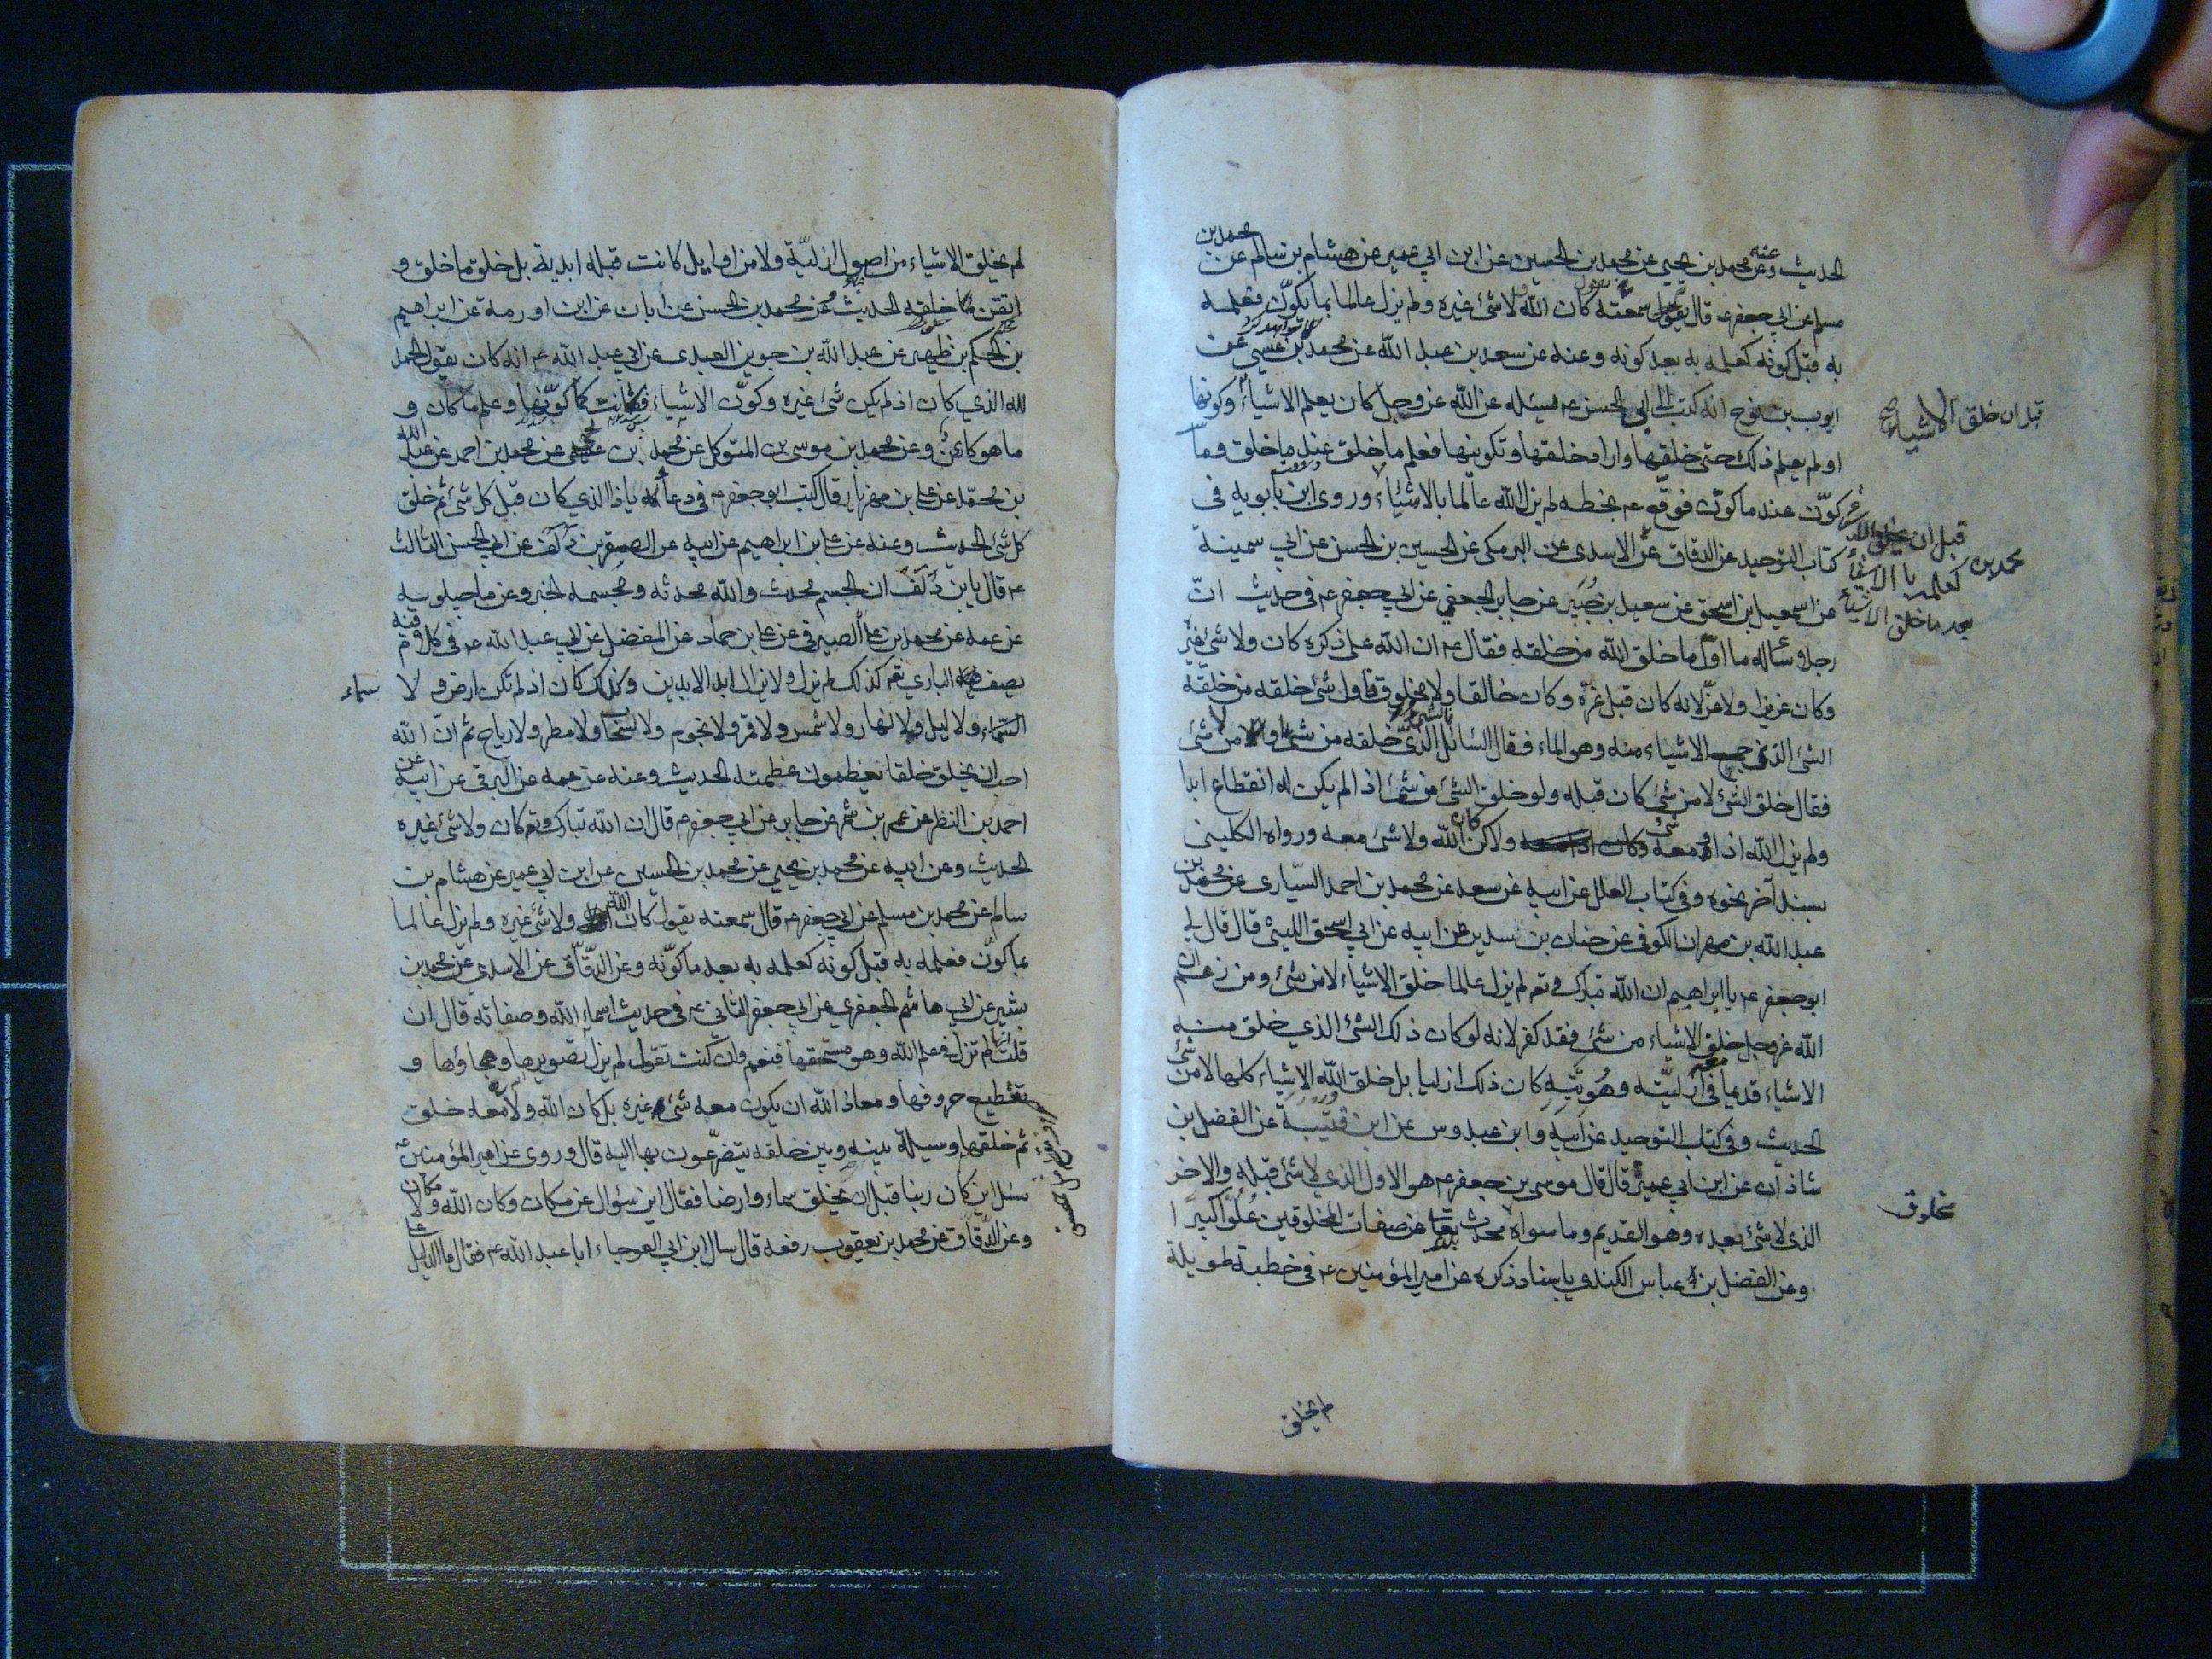 الحديث وعنه عن محمد بن يحيى عن محمد بن الحسين عن ابن ابي عمير عن هشام بن سالم عن محمد بن
مسلم عن ابي جعفر ع قال سمعته يقول كان الله لا شئ غيره ولم يزل عالما بما يكوّن فعلمه
به قبل كونه كعلمه به بعد كونه وعنه عن سعد بن عبد الله عن محمد بن عيسى عن
ايوب بن نوح انه كتب الى ابي الحسن ع يسئله عن الله عز وجل كان يعلم الاشياء وكونها
قبل ان خلق الاشياء
او لم يعلم ذلك حتى خلقها واراد خلقها وتكوينها فعلم ما خلق عند ما خلق وما
كوّن عند ما كوّن فوقّع ع بخطه لم يزل الله عالما بالاشياء وروى ابن بابويه فى
قبل ان يخلق الاشياء كعلمه بالاشياء بعد ما خلق الاشياء
كتاب التوحيد عن الدقاق عن الاسدى عن البرمكى عن الحسين بن الحسن عن ابي سمينة
محمد بن
عن اسمعيل بن اسحق عن سعيد بن جبير عن جابر الجعفي عن ابي جعفر ع فى حديث انّ
رجلا سأله ما اوّل ما خلق الله من خلقه فقال ع ان الله علا ذكره كان ولا شئ غيره
وكان عزيزا ولا عزّ لانه كان قبل عزّه وكان خالقا ولا مخلوق فاول شئ خلقه من خلقه
الشئ الذي جميع الاشياء منه وهو الماء فقال السائل الشئ خلقه من شئ او لا من شئ
فقال خلق الشئ لا من شئ كان قبله ولو خلق الشئ من شئ اذا لم يكن له انقطاع ابدا
ولم يزل الله اذا ومعه شئ ولاكن كان الله ولا شئ معه ورواه الكليني
بسند آخر نحوه وفى كتاب العلل عن ابيه عن سعد عن محمد بن احمد السّيارى عن محمد بن
عبد الله بن مهران الكوفى عن حنان بن سدير عن ابيه عن ابي اسحق الليثى قال قال لي
ابو جعفر ع يا ابراهيم ان الله تبارك وتع لم يزل عالما خلق الاشياء لا من شئ ومن زعم ان
الله عز وجل خلق الاشياء من شئ فقد كفر لانه لو كان ذلك الشئ الذي خلق منه
الاشياء قديما معه فى ازليّته وهويّته كان ذلك ازليا بل خلق الله الاشياء كلها لا من شئ
الحديث وفى كتاب التوحيد عن ابيه وابن عبدوس عن ابن قتيبة عن الفضل بن
شاذان عن ابن ابي عمير قال قال موسى بن جعفر ع هو الاول الذي لا شئ قبله والاخر
الذى لا شئ بعده وهو القديم وما سواه محدث تعالى عن صفات المخلوقين علوّا كبيرا
مخلوق
وعن الفضل بن عباس الكندى باسناد ذكره عن امير المؤمنين ع فى خطبة طويلة
لم يخلق
لم يخلق الاشياء من اصول ازليّة ولا من اوايل كانت قبله ابدية بل خلق ما خلق و
اتقن ما خلقه الحديث وعن محمد بن الحسن عن ابان عن ابن اورمة عن ابراهيم
بن الحكم بن ظهير عن عبد الله بن جوين العبدى عن ابي عبد الله ع انه كان يقول الحمد
لله الذي كان اذ لم يكن شئ غيره وكوّن الاشياء فكانت كما كوّنها وعلم ما كان و
ما هو كائن وعن محمد بن موسى بن المتوكل عن محمد بن يحيى عن محمد بن احمد عن عبد الله
بن محمد عن علي بن مهزيار قال كتب ابو جعفر ع فى دعائه يا ذا الذي كان قبل كل شئ ثم خلق
كل شئ الحديث وعنه عن علي بن ابراهيم عن ابيه عن الصقر بن دلف عن ابي الحسن الثالث
ع قال يا بن دلف ان الجسم محدث والله محدثه ومجسمه الخبر وعن ماجيلويه
عن عمه عن محمد بن علي الصيرفى عن علي بن حماد عن المفضل عن ابي عبد الله ع فى كلام
يصف فيه البارى تع كذلك لم يزل ولا يزال ابد الابدين وكذلك كان اذ لم تكن ارض ولا
سماء
السماء ولا ليل ولا نهار ولا شمس ولا قمر ولا نجوم ولا سحاب ولا مطر ولا رياح ثم انّ الله
احب ان يخلق خلقا يعظمون عظمته الحديث وعنه عن عمه عن البرقى عن ابيه عن
احمد بن النظر عن عمر بن شمر عن جابر عن ابي جعفر ع قال ان الله تبارك وتع كان ولا شئ غيره
الحديث وعن ابيه عن محمد بن يحيى عن محمد بن الحسين عن ابن ابي عمير عن هشام بن
سالم عن محمد بن مسلم عن ابي جعفر ع قال سمعته يقول كان الله ولا شئ غيره ولم يزل عالما
بما كوّن فعلمه به قبل كونه كعلمه به بعد ما كوّنه وعن الدقّاق عن الاسدى عن محمد بن
بشير عن ابي هاشم الجعفري عن ابي جعفر الثانى ع فى حديث اسماء الله وصفاته قال ان
قلت لم تزل فى علم الله وهو مستحقها فنعم وان كنت تقول لم يزل تصويرها وهجاؤها و
تقطيع حروفها ومعاذ الله ان يكون معه شئ غيره بل كان الله ولا معه خلق
ثم خلقها وسيلة بينه وبين خلقه يتضرّعون بها اليه قال وروى عن امير المؤمنين ع
سئل اين كان ربنا قبل ان يخلق سماء وارضا فقال اين سؤال عن مكان وكان الله ولا مكان
وعن الدقّاق عن محمد بن يعقوب رفعه قال سال ابن ابي العوجاء ابا عبد الله ع فقال ما الدليل على